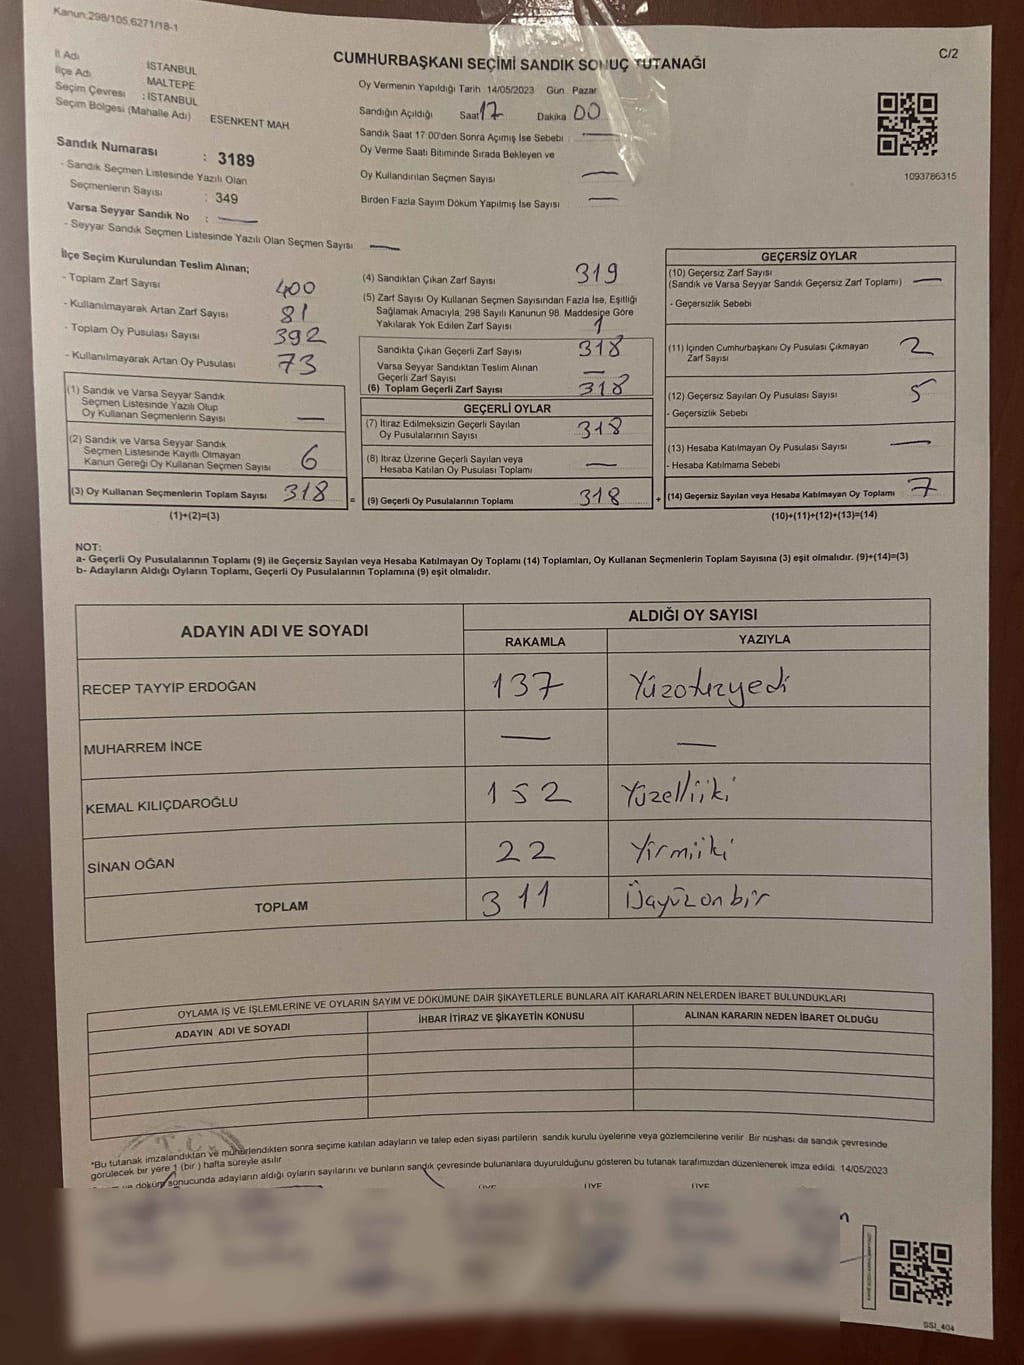 Kanun:298/105,6271/18-1
C/2
CUMHURBAŞKANI SEÇİMİ SANDIK SONUÇ TUTANAĞI
İl Adı İSTANBUL
İlçe Adı MALTEPE
Seçim Çevresi : İSTANBUL
Seçim Bölgesi (Mahalle Adı) ESENKENT MAH
Sandık Numarası : 3189
- Sandık Seçmen Listesinde Yazılı Olan
Seçmenlerin Sayısı : 349
Varsa Seyyar Sandık No : —
- Seyyar Sandık Seçmen Listesinde Yazılı Olan Seçmen Sayısı —
Oy Vermenin Yapıldığı Tarih 14/05/2023 Gün Pazar
Sandığın Açıldığı Saat 17 Dakika 00
Sandık Saat 17:00'den Sonra Açımış İse Sebebi —
Oy Verme Saati Bitiminde Sırada Bekleyen ve
Oy Kullandırılan Seçmen Sayısı —
Birden Fazla Sayım Döküm Yapılmış İse Sayısı —
1093786315
İlçe Seçim Kurulundan Teslim Alınan;
- Toplam Zarf Sayısı 400
- Kullanılmayarak Artan Zarf Sayısı 81
- Toplam Oy Pusulası Sayısı 392
- Kullanılmayarak Artan Oy Pusulası 73
(1) Sandık ve Varsa Seyyar Sandık
Seçmen Listesinde Yazılı Olup
Oy Kullanan Seçmenlerin Sayısı —
(2) Sandık ve Varsa Seyyar Sandık
Seçmen Listesinde Kayıtlı Olmayan
Kanun Gereği Oy Kullanan Seçmen Sayısı 6
(3) Oy Kullanan Seçmenlerin Toplam Sayısı 318 =
(1)+(2)=(3)
(4) Sandıktan Çıkan Zarf Sayısı 319
(5) Zarf Sayısı Oy Kullanan Seçmen Sayısından Fazla İse, Eşitliği
Sağlamak Amacıyla, 298 Sayılı Kanunun 98. Maddesine Göre
Yakılarak Yok Edilen Zarf Sayısı 1
Sandıkta Çıkan Geçerli Zarf Sayısı 318
Varsa Seyyar Sandıktan Teslim Alınan
Geçerli Zarf Sayısı —
(6) Toplam Geçerli Zarf Sayısı 318
GEÇERLİ OYLAR
(7) İtiraz Edilmeksizin Geçerli Sayılan
Oy Pusulalarının Sayısı 318
(8) İtiraz Üzerine Geçerli Sayılan veya
Hesaba Katılan Oy Pusulası Toplamı —
(9) Geçerli Oy Pusulalarının Toplamı 318 +
GEÇERSİZ OYLAR
(10) Geçersiz Zarf Sayısı
(Sandık ve Varsa Seyyar Sandık Geçersiz Zarf Toplamı) —
- Geçersizlik Sebebi
(11) İçinden Cumhurbaşkanı Oy Pusulası Çıkmayan
Zarf Sayısı 2
(12) Geçersiz Sayılan Oy Pusulası Sayısı 5
- Geçersizlik Sebebi
(13) Hesaba Katılmayan Oy Pusulası Sayısı —
- Hesaba Katılmama Sebebi
(14) Geçersiz Sayılan veya Hesaba Katılmayan Oy Toplamı 7
(10)+(11)+(12)+(13)=(14)
NOT:
a- Geçerli Oy Pusulalarının Toplamı (9) ile Geçersiz Sayılan veya Hesaba Katılmayan Oy Toplamı (14) Toplamları, Oy Kullanan Seçmenlerin Toplam Sayısına (3) eşit olmalıdır. (9)+(14)=(3)
b- Adayların Aldığı Oyların Toplamı, Geçerli Oy Pusulalarının Toplamına (9) eşit olmalıdır.
ADAYIN ADI VE SOYADI ALDIĞI OY SAYISI
RAKAMLA YAZIYLA
RECEP TAYYİP ERDOĞAN 137 Yüzotuzyedi
MUHARREM İNCE — —
KEMAL KILIÇDAROĞLU 152 Yüzelliiki
SİNAN OĞAN 22 Yirmiiki
TOPLAM 311 Üçyüzonbir
OYLAMA İŞ VE İŞLEMLERİNE VE OYLARIN SAYIM VE DÖKÜMÜNE DAİR ŞİKAYETLERLE BUNLARA AİT KARARLARIN NELERDEN İBARET BULUNDUKLARI
ADAYIN ADI VE SOYADI İHBAR İTİRAZ VE ŞİKAYETİN KONUSU ALINAN KARARIN NEDEN İBARET OLDUĞU
T.C.
*Bu tutanak imzalandıktan ve mühürlendikten sonra seçime katılan adayların ve talep eden siyasi partilerin sandık kurulu üyelerine veya gözlemcilerine verilir. Bir nüshası da sandık çevresinde
görülecek bir yere 1 (bir) hafta süreyle asılır.
döküm sonucunda adayların aldığı oyların sayılarını ve bunların sandık çevresinde bulunanlara duyurulduğunu gösteren bu tutanak tarafımızdan düzenlenerek imza edildi. 14/05/2023
ÜYE ÜYE ÜYE
SSI_404